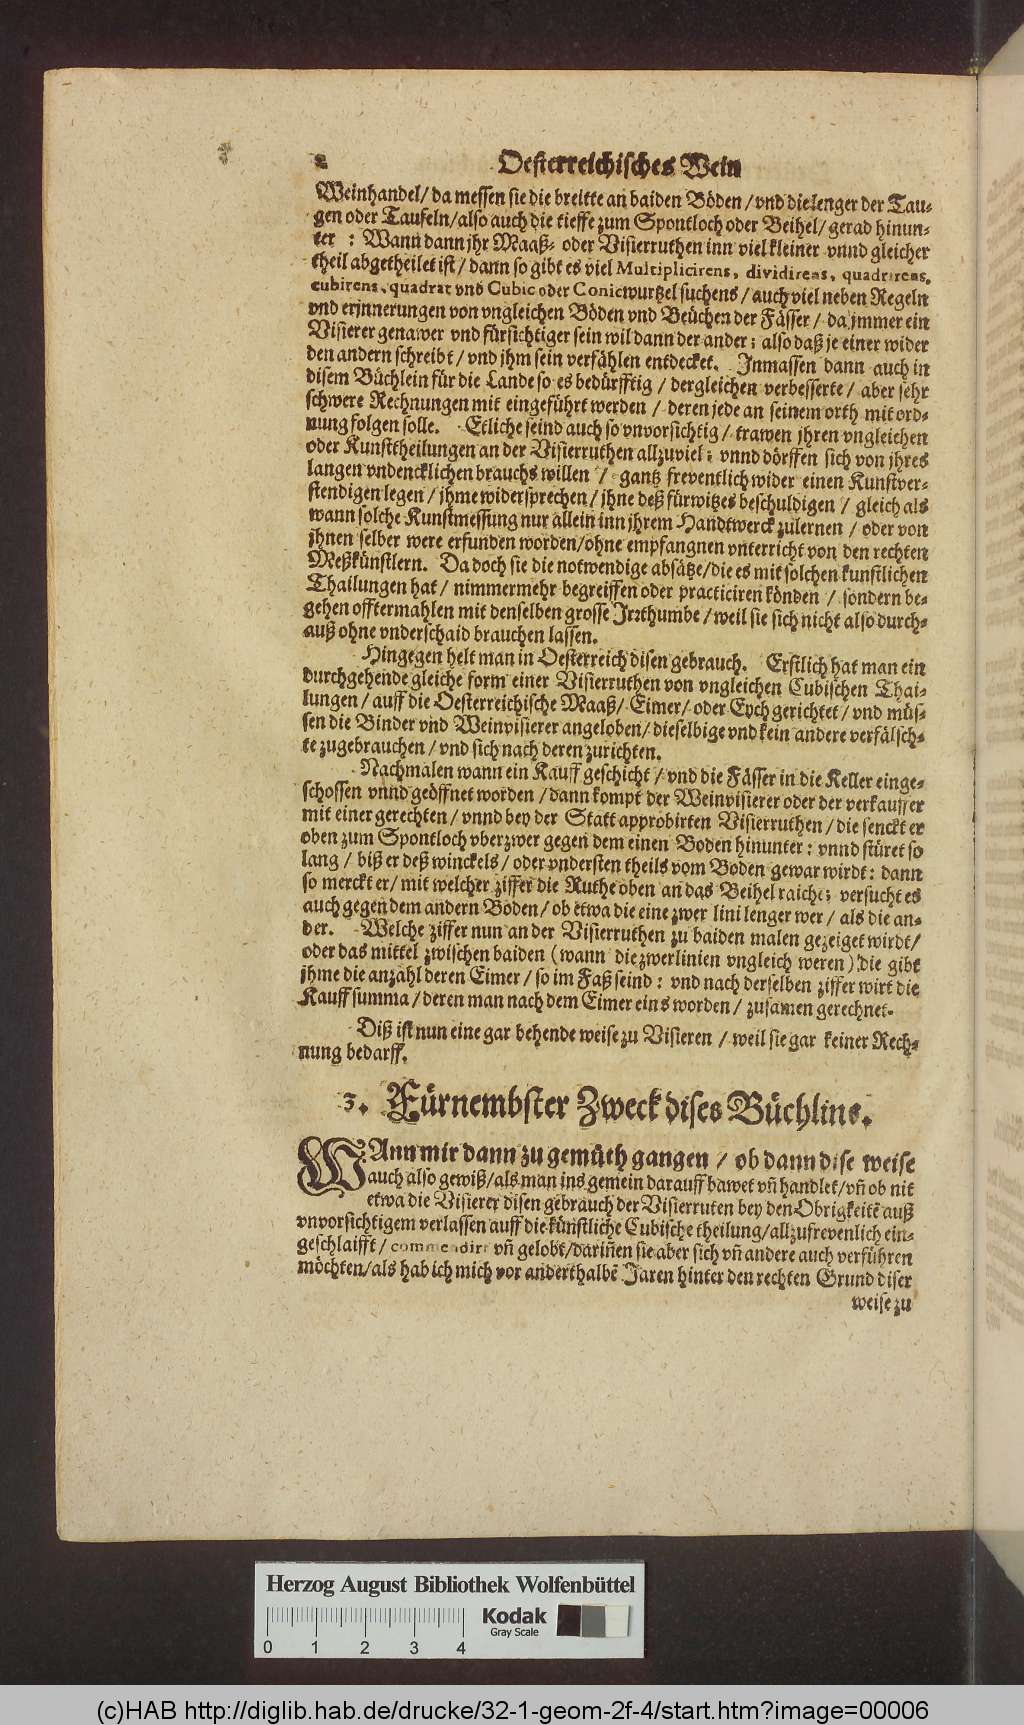 2 Oesterreichisches Wein
Weinhandel/ da messen sie die breitte an baiden Böden / vnd die lenger der Tau-
gen oder Taufeln/ also auch die tieffe zum Spontloch oder Beihel/ gerad hinun-
ter : Wann dann jhr Maaß- oder Visierruthen inn viel kleiner vnnd gleicher
theil abgetheilet ist/ dann so gibt es viel Multiplicirens, dividirens, quadrirens,
cubirens, quadrat vnd Cubic oder Conicwurtzel suchens / auch viel neben Regeln
vnd erinnerungen von vngleichen Böden vnd Beüchen der Fässer / da jmmer ein
Visierer genawer vnd fürsichtiger sein wil dann der ander; also daß je einer wider
den andern schreibt / vnd jhm sein verfählen entdecket. Inmassen dann auch in
disem Büchlein für die Lande so es bedürfftig / dergleichen verbesserte / aber sehr
schwere Rechnungen mit eingeführt werden / deren jede an seinem orth mit ord-
nung folgen solle. Etliche seind auch so vnvorsichtig / trawen jhren vngleichen
oder Kunsttheilungen an der Visierruthen allzuviel; vnnd dörffen sich von jhres
langen vndencklichen brauchs willen / gantz freventlich wider einen Kunstver-
stendigen legen / jhme widersprechen / jhne deß fürwitzes beschuldigen / gleich als
wann solche Kunstmessung nur allein inn jhrem Handtwerck zulernen / oder von
jhnen selber were erfunden worden/ ohne empfangnen vnterricht von den rechten
Meßkünstlern. Da doch sie die notwendige absätze/ die es mit solchen kunstlichen
Thailungen hat / nimmermehr begreiffen oder practiciren könden / sondern be-
gehen offtermahlen mit denselben grosse Irrthumbe / weil sie sich nicht also durch-
auß ohne vnderschaid brauchen lassen.
Hingegen helt man in Oesterreich disen gebrauch. Erstlich hat man ein
durchgehende gleiche form einer Visierruthen von vngleichen Cubischen Thai-
lungen / auff die Oesterreichische Maaß/ Eimer/ oder Eych gerichtet / vnd müs-
sen die Binder vnd Weinvisierer angeloben / dieselbige vnd kein andere verfälsch-
te zugebrauchen / vnd sich nach deren zurichten.
Nachmalen wann ein Kauff geschicht / vnd die Fässer in die Keller einge-
schossen vnnd geöffnet worden / dann kompt der Weinvisierer oder der verkauffer
mit einer gerechten / vnnd bey der Statt approbirten Visierruthen / die senckt er
oben zum Spontloch vberzwer gegen dem einen Boden hinunter: vnnd stüret so
lang / biß er deß winckels / oder vndersten theils vom Boden gewar wirdt: dann
so merckt er/ mit welcher ziffer die Ruthe oben an das Beihel raicht; versucht es
auch gegen dem andern Boden / ob etwa die eine zwer lini lenger wer / als die an-
der. Welche ziffer nun an der Visierruthen zu baiden malen gezeiget wirdt/
oder das mittel zwischen baiden (wann die zwerlinien vngleich weren) die gibt
jhme die anzahl deren Eimer / so im Faß seind : vnd nach derselben ziffer wirt die
Kauffsumma / deren man nach dem Eimer eins worden / zusamen gerechnet.
Diß ist nun eine gar behende weise zu Visieren / weil sie gar keiner Rech-
nung bedarff.
3. Fürnembster Zweck dises Büchlins.
WAnn mir dann zu gemüth gangen / ob dann dise weise
auch also gewiß/ als man ins gemein darauff bawet vñ handlet/ vñ ob nit
etwa die Visierer disen gebrauch der Visierruten bey den Obrigkeitē auß
vnvorsichtigem verlassen auff die künstliche Cubische theilung/ allzufreventlich ein-
geschlaifft / commendirt vñ gelobt/ dariñen sie aber sich vñ andere auch verführen
möchten/ als hab ich mich vor anderthalbē Jaren hinter den rechten Grund diser
weise zu
Herzog August Bibliothek Wolfenbüttel
Kodak
Gray Scale
0 1 2 3 4
(c)HAB http://diglib.hab.de/drucke/32-1-geom-2f-4/start.htm?image=00006